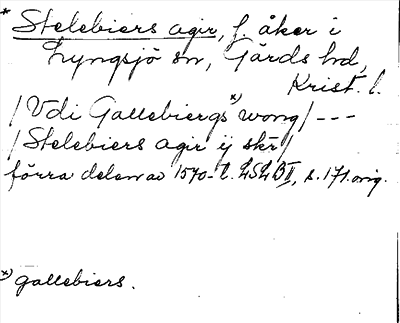 * Stelebiers agir, f. åker i
Lyngsjö sn, Gärds hd,
Krist. l.
/Vdi Gallebiergs x) wong/ ---
/Stelebiers agir ij skr/
förra delen av 1570- t. LSLB II, s. 171. orig.
x) gallebiers.